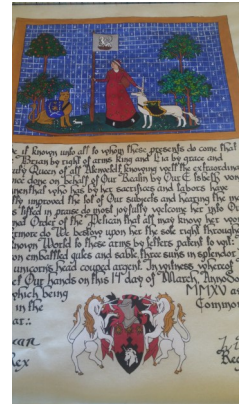 e it known unto all to whom these presents do come that
Brian by right of arms King and
Queen of all Aenweld, knowing well the extraordina
nce done on behalf of Our Realm by Our
that who has by her sacrifices and labors have
improved the lot of Our subjects and hearing the
lifted in praise do most joyfully welcome her into
Order of the Pelican that all may know her wor
do We bestow upon her the sole right through
nown World to these arms by letters patent to wit:
on embattled gules and sable three suns in splendor
unicorns head couped argent. In witness whereof
Our hands on this 14 day of March, Anno So
which being MMXV as
in the Common
ar:
Rex